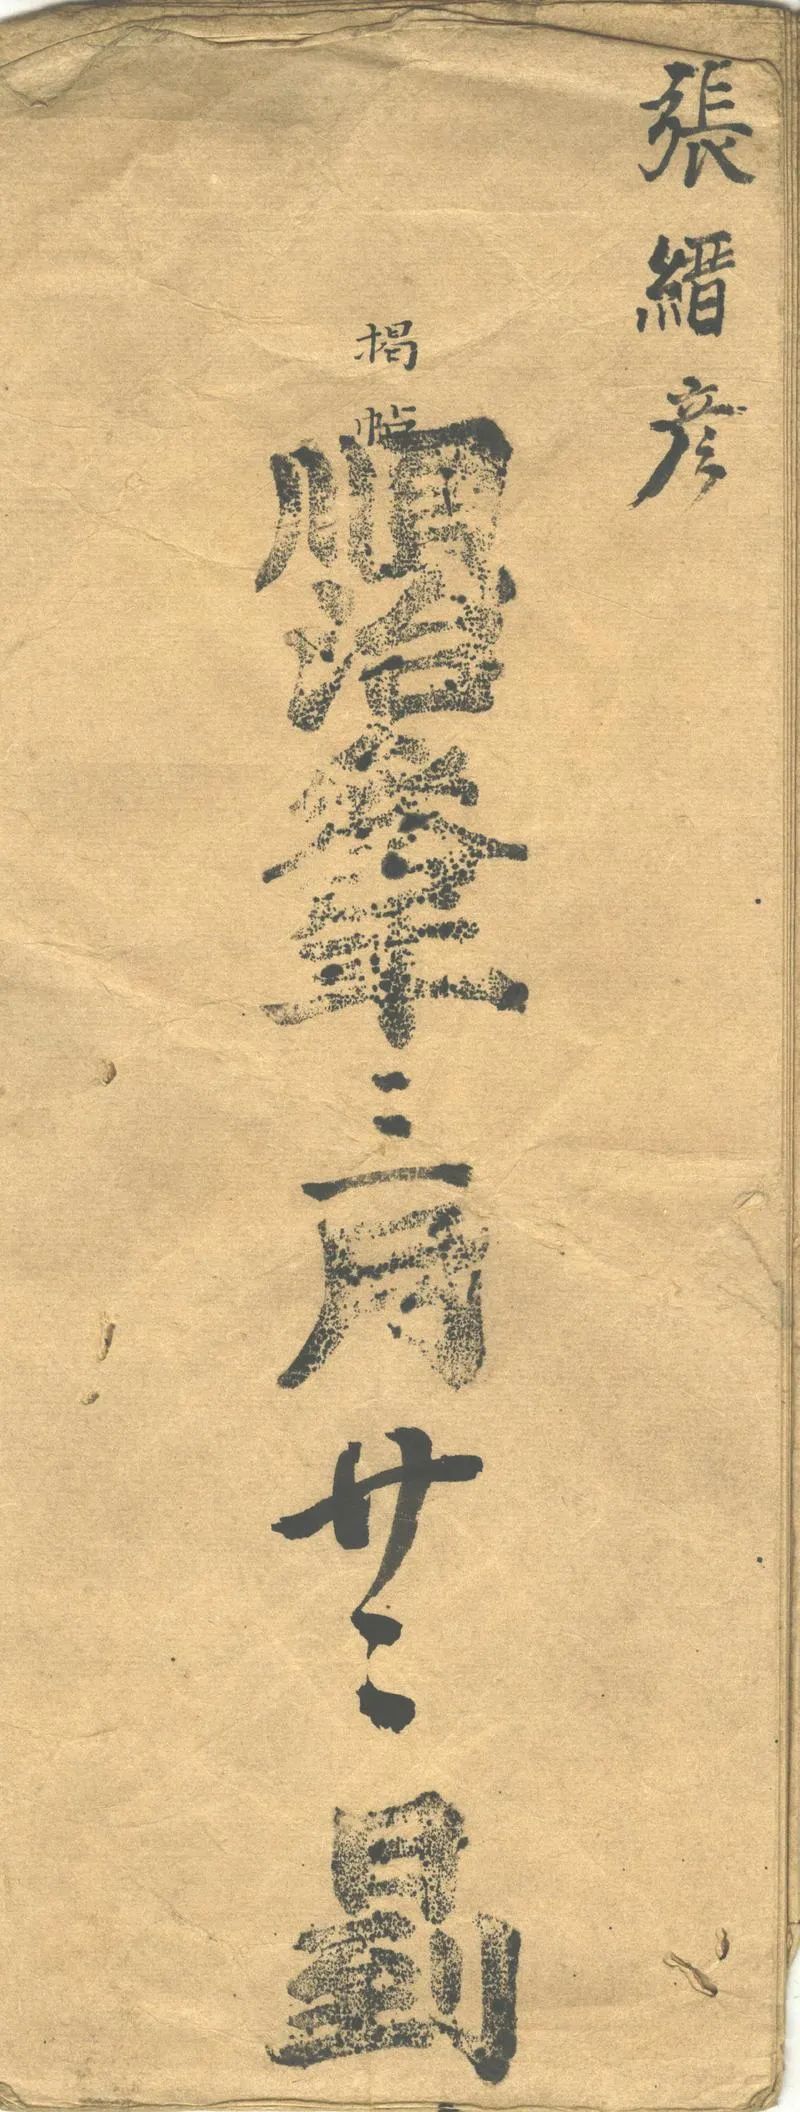 張縉彥
揭帖
順治叄年三月廿二日到